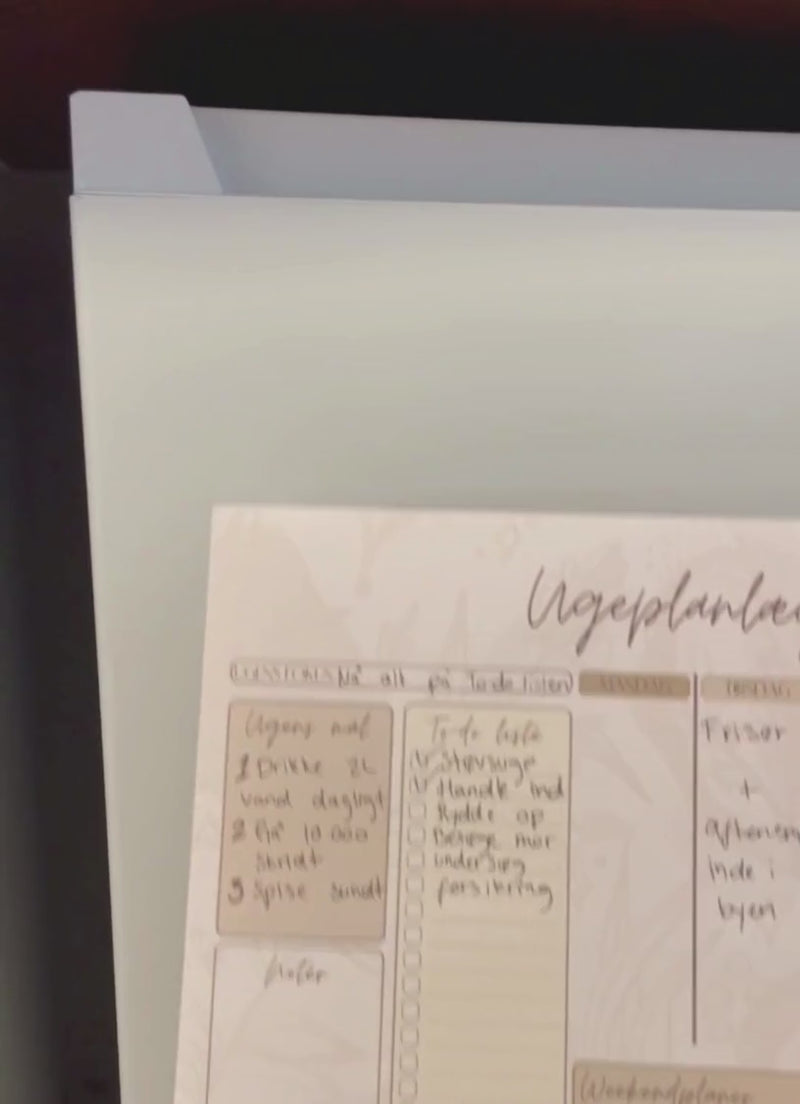 Ugeplanlæ
Nå alt på To do listen
MANDAG
TIRSDAG
Ugens mål
1 Drikke 2L
vand dagligt
2 Gå 10 000
skridt
3 Spise sundt
To do liste
Støvsuge
Handle ind
Rydde op
Besøge mor
undersøg
forsikring
Frisør
+
aftensm
inde i
byen
Noter
Weekendplaner